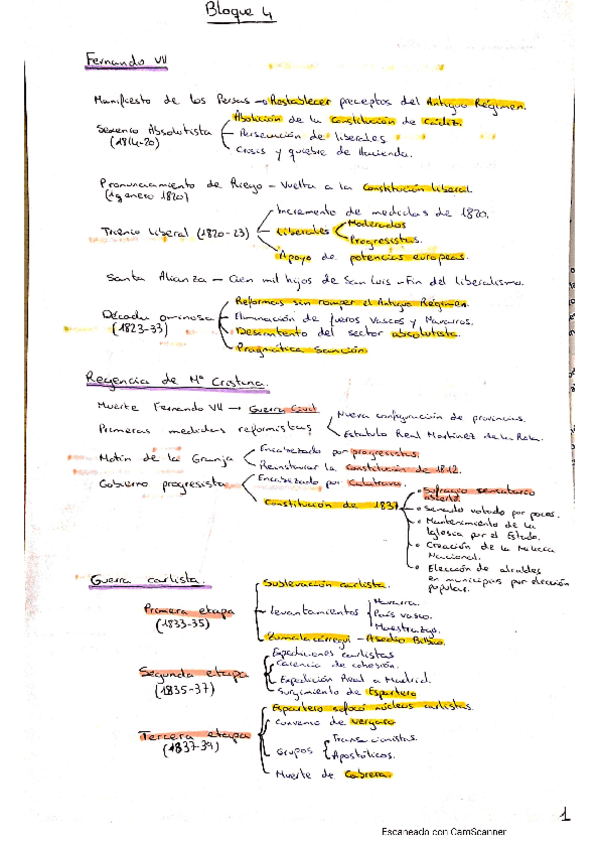 Bloque 4
Fernando VII
Manifiesto de los Persas → Restablecer preceptos del Antiguo Régimen.
Sexenio Absolutista (1814-20)
Abolición de la Constitución de Cádiz.
Persecución de liberales
Crisis y quiebre de Hacienda.
Pronunciamiento de Riego - Vuelta a la Constitución liberal
(1 enero 1820)
Trienio liberal (1820-23)
Incremento de medidas de 1820.
Liberales
Moderados
Progresistas.
Apoyo de potencias europeas.
Santa Alianza - Cien mil hijos de San Luis - Fin del liberalismo
Década ominosa (1823-33)
Reformas sin romper el Antiguo Régimen.
Eliminación de fueros vascos y Navarros.
Descontento del sector absolutista.
Pragmática Sanción
Regencia de Mª Cristina.
Muerte Fernando VII → Guerra Civil
Primeras medidas reformistas
Nueva configuración de provincias.
Estatuto Real Martínez de la Rosa.
Motín de la Granja
Encabezado por progresistas.
Reinstaurar la constitución de 1812.
Gobierno progresista
Encabezado por Calatrava.
Constitución de 1837
Sufragio censatario
Senado votado por pocos.
Mantenimiento de la
Iglesia por el Estado.
Creación de la Milicia
Nacional.
Elección de alcaldes
en municipios por elección
popular.
Guerra carlista.
Primera etapa
(1833-35)
Sublevación carlista.
Levantamientos
Navarra.
País vasco.
Maestrazgo.
Zumalacárregui - Asedio Bilbao.
Segunda etapa
(1835-37)
Expediciones carlistas
Carencia de cohesión.
Expedición Real a Madrid.
Surgimiento de Espartero
Tercera etapa
(1837-39)
Espartero sofocó núcleos carlistas.
Convenio de Vergara
Grupos
Transaccionistas.
Apostólicos.
Muerte de Cabrera.
1
Escaneado con CamScanner